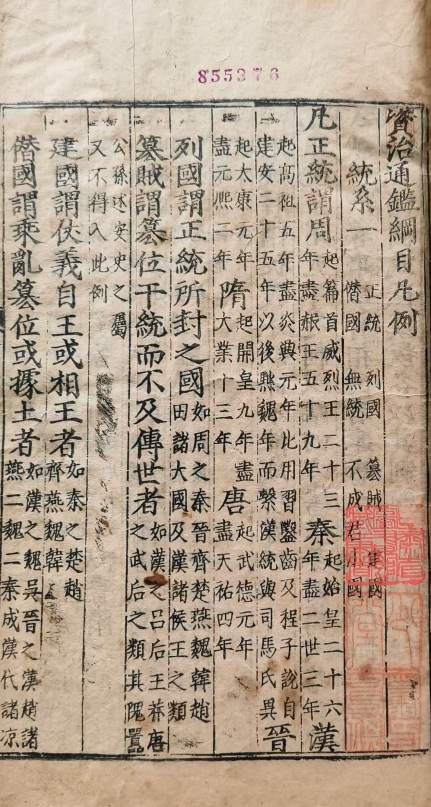 855376
資治通鑑綱目凡例
統系一 正統 列國 篡賊 建國 僭國 無統 不成君小國
凡正統謂周 起篇首威烈王二十三年盡赧王五十九年 秦 起始皇二十六年盡二世三年 漢
起高祖五年盡炎興元年此用習鑿齒及程子說自建安二十五年以後黜魏年而繫漢統與司馬氏異 晉
起大康元年盡元熙二年 隋 起開皇九年盡大業十三年 唐 起武德元年盡天祐四年
列國謂正統所封之國 如周之秦晉齊楚燕魏韓趙田諸大國及漢諸侯王之類
篡賊謂篡位干統而不及傳世者 如漢之呂后王莽唐之武后之類其隗囂
公孫述安史之屬又不得入此例
建國謂仗義自王或相王者 如秦之楚趙齊燕魏韓
僭國謂乘亂篡位或據土者 如漢之魏吳晉之漢趙諸燕二魏二秦成漢代諸凉